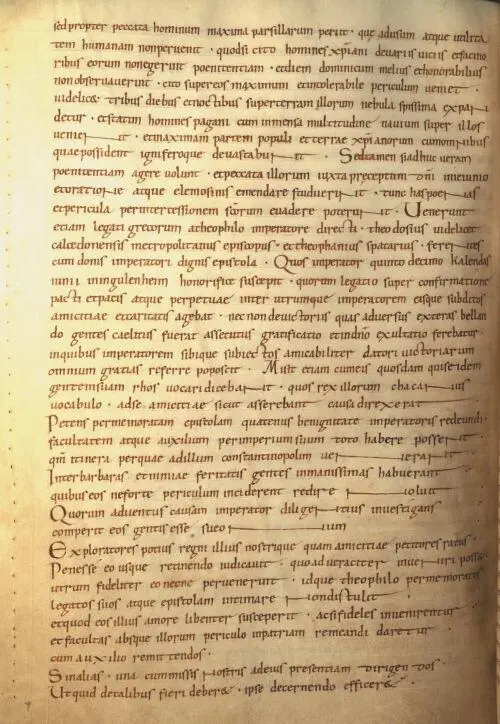 sed propter peccata hominum maxima pars illarum perit · que ad usum atque utilita
tem humanam non peruenit · quod si cito homines xpiani de uariis uiciis et facino
ribus eorum non egerint poenitentiam · et diem dominicum melius et honorabilius
non obseruauerint · cito super eos maximum et intolerabile periculum ueniet ·
uidelicet tribus diebus et noctibus super terram illorum nebula spissima expan
detur · et statim homines pagani cum inmensa multitudine nauium super illos
uenient · et maximam partem populi et terrae xpianorum cum omnibus
quae possident igni ferroque deuastabunt · Sed tamen si adhuc ueram
poenitentiam agere uolunt · et peccata illorum iuxta preceptum dni in ieiunio
et oratione atque elemosinis emendare studuerint · tunc has poenas
et pericula per intercessionem scorum euadere poterunt · Uenerunt
etiam legati grecorum a theophilo imperatore directi · theodosius uidelicet
calcedonensis metropolitanus episcopus · et theophanius spatarius · ferentes
cum donis imperatori dignis epistola · Quos imperator quinto decimo kalendas
iunii in ingulenheim honorifice suscepit · quorum legatio super confirmatione
pacti et pacis atque perpetuae inter utrumque imperatorem eique subditos
amicitiae et caritatis agebat · nec non de uictoriis quas aduersus exteras bellan
do gentes caelitus fuerat assecutus gratificatio et in dno exultatio ferebatur ·
in quibus imperatorem sibique subiectos amicabiliter datori uictoriarum
omnium gratias referre poposcit · Misit etiam cum eis quosdam qui se idem
gentem suam rhos uocari dicebant · quos rex illorum chacanus
uocabulo · ad se amicitiae sicut asserebant causa direxerat
Petens per memoratam epistolam quatenus benignitate imperatoris redeundi ·
facultatem atque auxilium per imperium suum toto habere possent ·
qm itinera per quae ad illum constantinopolim uenerant ·
Inter barbaras et nimiae feritatis gentes inmanissimas habuerant
quibus eos ne forte periculum inciderent redire noluit
Quorum aduentus causam imperator diligentius inuestigans
comperit eos gentis esse sueonum
Exploratores potius regni illius nostrique quam amicitiae petitores ratus ·
Penes se eo usque retinendo iudicauit · quoad ueraciter inueniri posset
utrum fideliter eo necne peruenerint · idque theophilo per memoratos
legatos suos atque epistolam intimare non distulit
et quod eos illius amore libenter susceperit · ac si fideles inuenirentur
et facultas absque illorum periculo in patriam remeandi daretur
cum auxilio remittendos ·
Sin alias · una cum missis nostris ad eius presentiam dirigendos ·
Ut quid de talibus fieri deberet · ipse decernendo efficeret ·